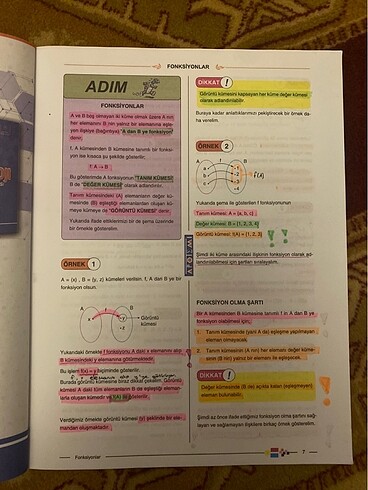 FONKSİYONLAR
ADIM
FONKSİYONLAR
A ve B boş olmayan iki küme olmak üzere A nın
her elemanını B nin yalnız bir elemanına eşle-
yen ilişkiye (bağıntıya) "A dan B ye fonksiyon"
denir.
f, A kümesinden B kümesine tanımlı bir fonksi-
yon ise kısaca şu şekilde gösterilir;
f: A → B
Bu gösterimde A fonksiyonun "TANIM KÜMESİ"
B de "DEĞER KÜMESİ" olarak adlandırılır.
Tanım kümesindeki (A) elemanların değer kü-
mesinde (B) eşleştiği elemanlardan oluşan kü-
meye "GÖRÜNTÜ KÜMESİ" denir.
Yukarıda ifade ettiklerimizi bir de şema üzerinde
ÖRNEK 1
A = {x} , B = {y, z} kümeleri verilsin. f, A dan B ye bir
fonksiyon olsun.
A f B
Görüntü
kümesi
Yukarıdaki örnekte f fonksiyonu A daki x elemanını alıp
B kümesindeki y elemanına götürmektedir.
Bu işlem f(x) = y biçiminde gösterilir.
Burada görüntü kümesine biraz dikkat çekelim. Görüntü
kümesi A daki tüm elemanların B de eşleştiği eleman-
larla oluşan kümedir ve f(A) ile gösterilir.
Verdiğimiz örnekte görüntü kümesi {y} şeklinde bir ele-
mandan oluşmaktadır.
Fonksiyonlar
DİKKAT !
Görüntü kümesini kapsayan her küme değer kümesi
olarak adlandırılabilir.
Buraya kadar anlattıklarımızı pekiştirecek bir örnek da-
ha verelim.
ÖRNEK 2
A f B
f(A)
Yukarıda şema ile gösterilen f fonksiyonunun
Tanım kümesi: A = {a, b, c}
Değer kümesi: B = {1, 2, 3, 4}
Görüntü kümesi: f(A) = {1, 2, 3}
Şimdi iki küme arasındaki ilişkinin fonksiyon olarak ad-
landırılabilmesi için şartları sıralayalım.
FONKSİYON OLMA ŞARTI
Bir A kümesinden B kümesine tanımlı f in A dan B ye
fonksiyon olabilmesi için;
1. Tanım kümesinde (yani A da) eşleşme yapılmayan
eleman olmayacak.
2. Tanım kümesinin (A nın) her elemanı değer küme-
sinin (B nin) yalnız bir elemanı ile eşleşecek.
DİKKAT !
Değer kümesinde (B de) açıkta kalan (eşleşmeyen)
eleman bulunabilir.
Şimdi az önce ifade ettiğimiz fonksiyon olma şartını sağ-
layan ve sağlamayan ilişkilere birkaç örnek gösterelim.
7